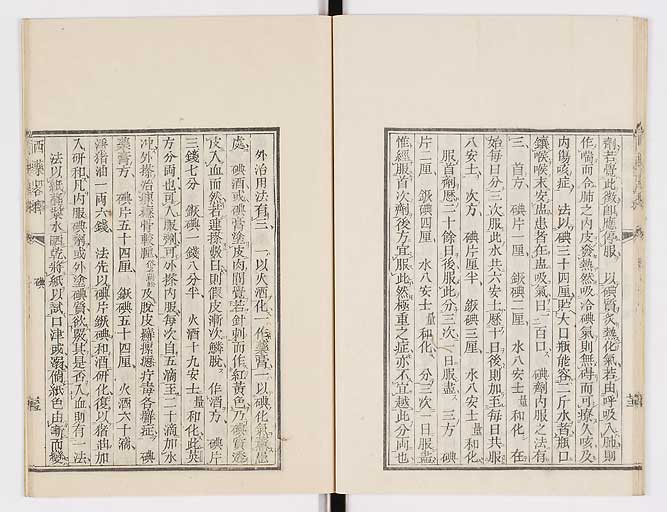 劑若覺此微卽應停服 以碘質炙熱化氣若由呼吸入肺則
作喘而令肺之內皮發熱然吸冷碘氣則無碍而可療久咳及
內傷咳症 法以碘三十四厘貯大口瓶能容二斤水者瓶口
鑲喉喉末安盅患者在盅吸氣日一二百口 碘劑內服之法有
三 首方 碘片一厘 鉃碘二厘 水八安士量和化 在
始每日分三次服此水共六安士歷十日後則加至每日共服
八安士 次方 碘片厘半 鉃碘三厘 水八安士量和化
服首劑歷二十餘日後服此分三次一日服盡 三方 碘
片二厘 鉃碘四厘 水八安士量和化 分三次一日服盡
惟經服首次劑後方宜服此然極重之症亦不宜越此分兩也
外治用法有三 一以火酒化 一作藥膏 一以碘化氣薰患
處 碘酒或碘膏塗皮肉間覺若針刺而作紅黃色乃碘質透
皮入血而然若連搽數日則假皮漸次鱗脫 作酒方 碘片
三錢七分 鉃碘一錢八分半 火酒十九安士量和化此英
方分兩也可入服劑可外搽內服每次自五滴至二十滴加水
冲外搽治瘰癧骨較腫及脫皮癬摞癧疔毒各癬症 碘
藥膏方 碘片五十四厘 鉃碘五十四厘 火酒六十滴
淨猪油一兩六錢 法先以碘片鉃碘和酒研化復以猪油加
入研和凡內服碘劑或外塗碘質欲驗其是否入血則有一法
法以紙蘸漿水晒乾將紙以試口津或溺倘紙色由漸而變
西藥畧釋 碘